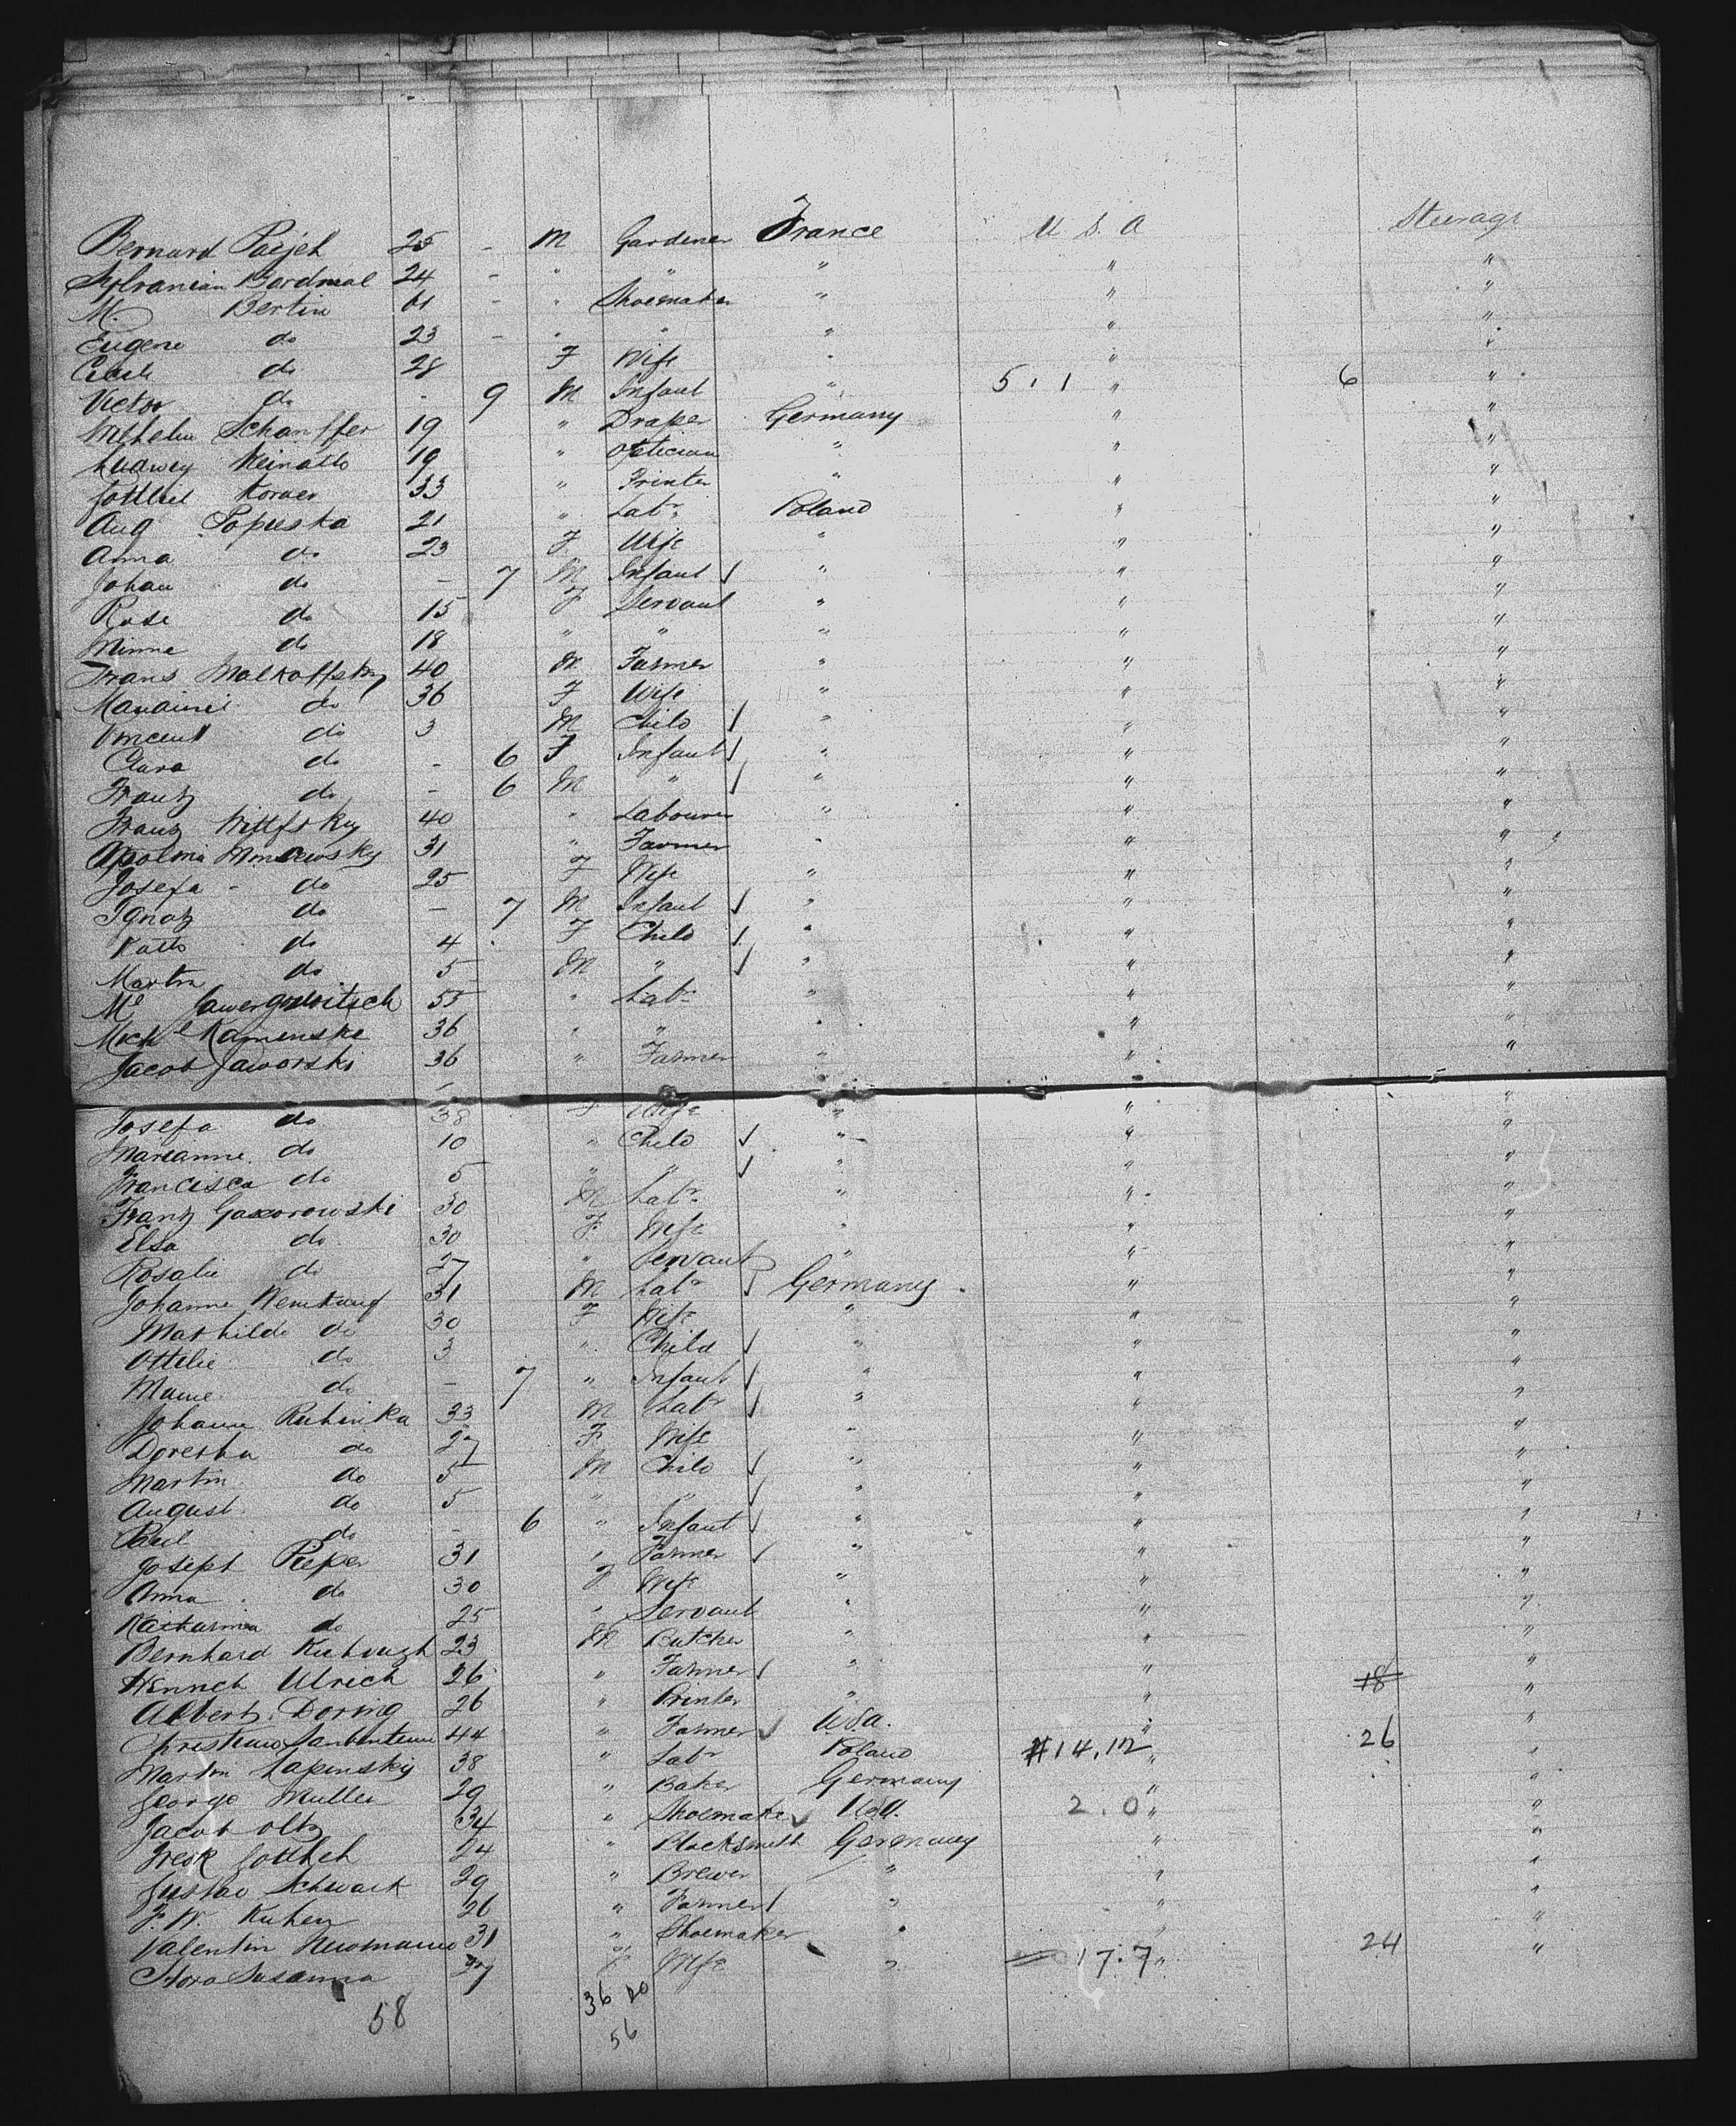 Bernard Paejeh 25 - M Gardener France U.S.A Steerage
Sylvanian Bordneal 24 - " " " " "
M. Bertin 61 - " Shoemaker " " "
Eugene do 23 - " " " " "
Cecile do 28 F Wife " " "
Victor do - 9 M Infant " 5.1 " 6 "
Wilhelm Schauffer 19 " Draper Germany " "
Ludwig Reinatto 19 " Optician " " "
Gottlieb Korner 33 " Printer " " "
Aug Popuska 21 " Labr. Poland " "
Anna do 23 F Wife " " "
Johan do - 7 M Infant √ " " "
Rose do 15 F Servant " " "
Minna do 18 " " " " "
Frans Malkoffsky 40 M Farmer " " "
do 36 F Wife " " "
Vincent do 3 M Child √ " " "
Clara do - 6 F Infant √ " " "
Frantz do - 6 M " √ " " "
Franz Wittfsky 40 " Labourer " " "
Apolonia 31 " Farmer " " "
Josefa - do 25 F Wife " " "
Ignatz do - 7 M Infant √ " " "
Katto do 4 F Child √ " " "
Martin do 5 M " √ " " "
Ml 55 " Labr " " "
Michl Kamenska 36 " " " " "
Jacob Jaworski 36 " Farmer " " "
Josefa do 38 F Wife " " "
Marianne do 10 " Child √ " " "
Francisca do 5 " " √ " " "
Franz Gaxorowski 30 M Labr " " "
Elsa do 30 F Wife " " "
Rosalie do 27 " Servant " " "
Johanne 31 M Labr √ Germany " "
Mathilde do 30 F Wife " " "
Ottilie do 3 " Child √ " " "
do - 7 " Infant √ " " "
Johann Ruhinka 33 M Labr √ " " "
Doretha do 27 F Wife " " "
Martin do 5 M Child √ " " "
August do 5 " " √ " " "
Paul do - 6 " Infant √ " " "
Joseph Pieper 31 " Farmer √ " " "
Anna do 30 F Wife " " "
Katharina do 25 " Servant " " "
Bernhard 23 M Butcher " " "
Heinrich Ulrich 26 " Farmer √ " " 18 "
Albert Doring 26 " Printer " " "
44 " Farmer √ USA. " 26 "
Martin Lapensky 38 " Labr Poland #14.12 " "
George Muller 29 " Baker Germany " "
Jacob Oltz 34 " Shoemaker √ USA. 2.0 " "
Fredk Gottlieb 24 " Blacksmith Germany " "
Gustav Schwark 29 " Brewer " " "
F. W. Kuhen 26 " Farmer √ " " "
Valentin Neumann 31 " Shoemaker " " "
Susanna 27 F Wife " 17.7 " 24 "
58 36 20
56